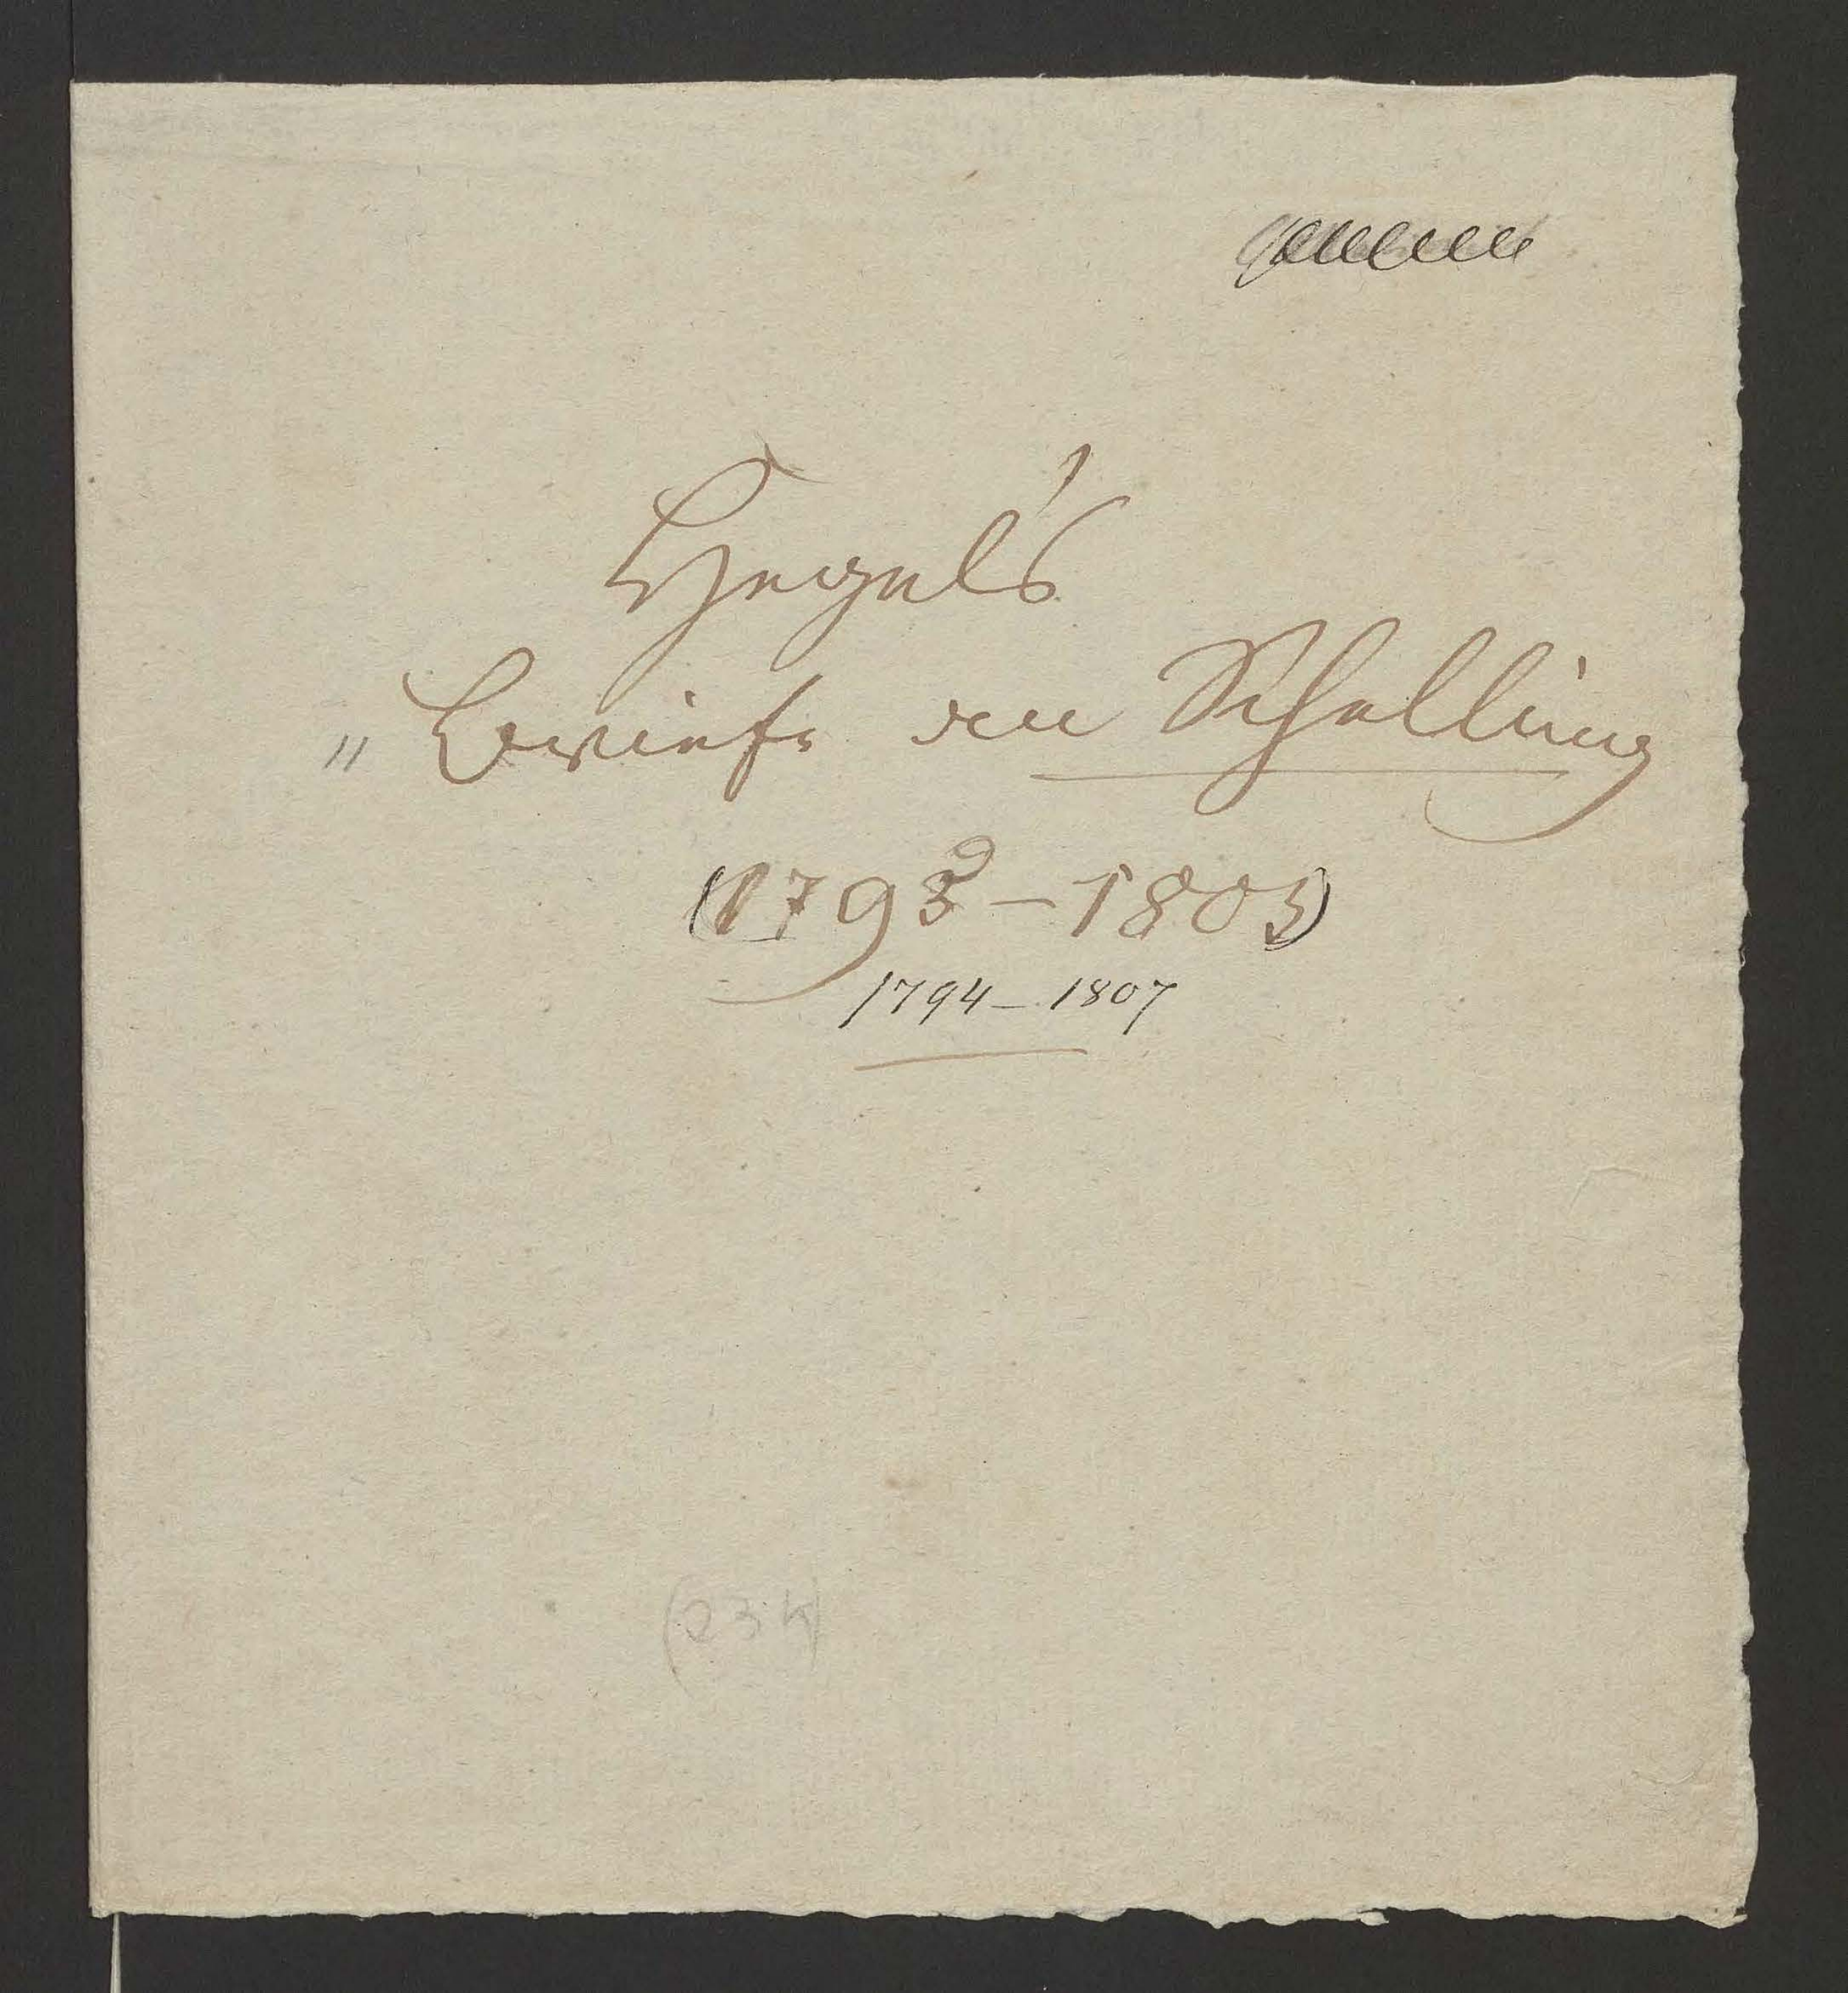 Hegel's
„ Briefe an Schelling
(1793 – 1803)
1794 – 1807